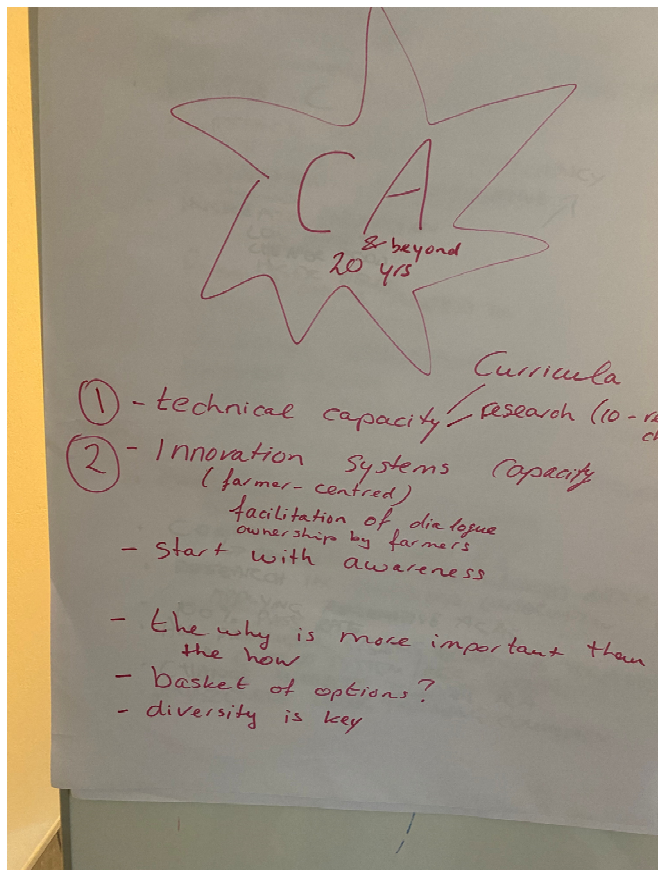 CA
& beyond
20 yrs
Curricula
① - technical capacity research (10 -
② - Innovation systems capacity
(farmer-centred)
facilitation of dialogue
ownership by farmers
- start with awareness
- the why is more important than
the how
- basket of options?
- diversity is key